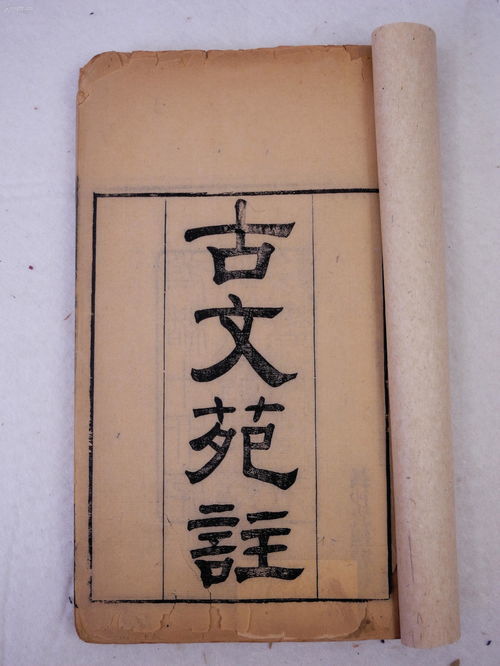 古文苑註